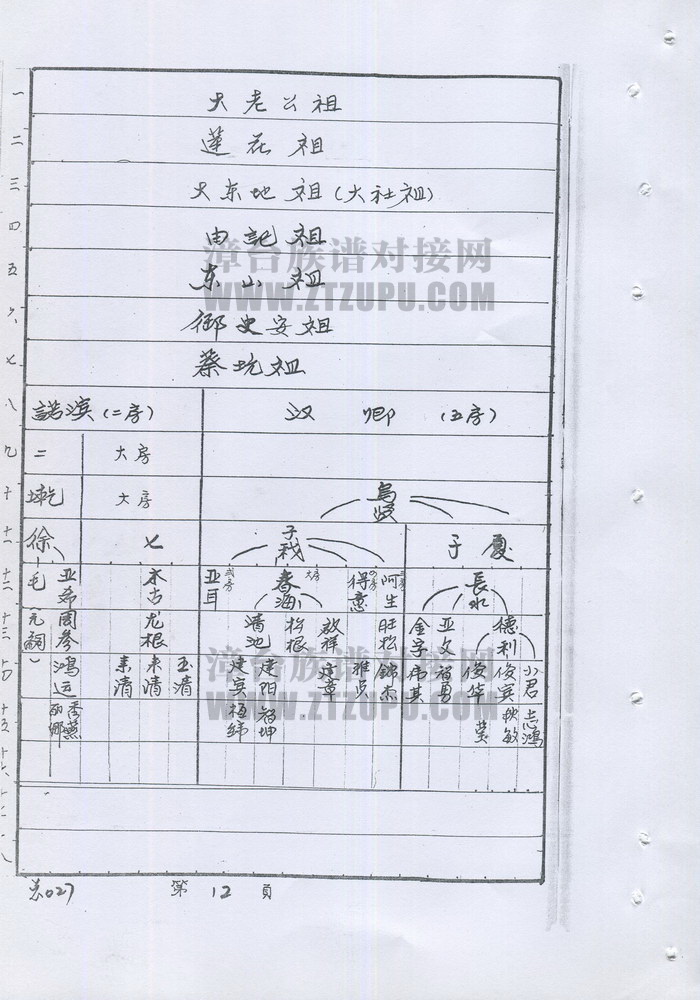 一 大老公祖
二 莲花祖
三 大东地祖(大社祖)
四 由記祖
五 东山祖
六 御史安祖
七 蔡坑祖
八 諾滨(二房) 汉卿(五房)
九 二 大房
十 乾 大房 烏
十一 徐 七 子 子夏
十二 毛 亚希 木古 亚耳 式房 春海 大房 得意 阿生 長水
十三 (元詞) 國參 龙根 清池 松根 啟祥 旺松 金字 亚文 德利
十四 鴻运 来清 来清 玉清 建宾 建阳 建章 雅 錦杰 伟其 智勇 俊华 俊宾 小君
十五 丽娜 秀燕 栢綿 智坤 莹 秋敏 志鴻
十六
十七
十八
总027 第12頁
漳台族谱对接网
WWW.ZTZUPU.COM
漳台族谱对接网
WWW.ZTZUPU.COM